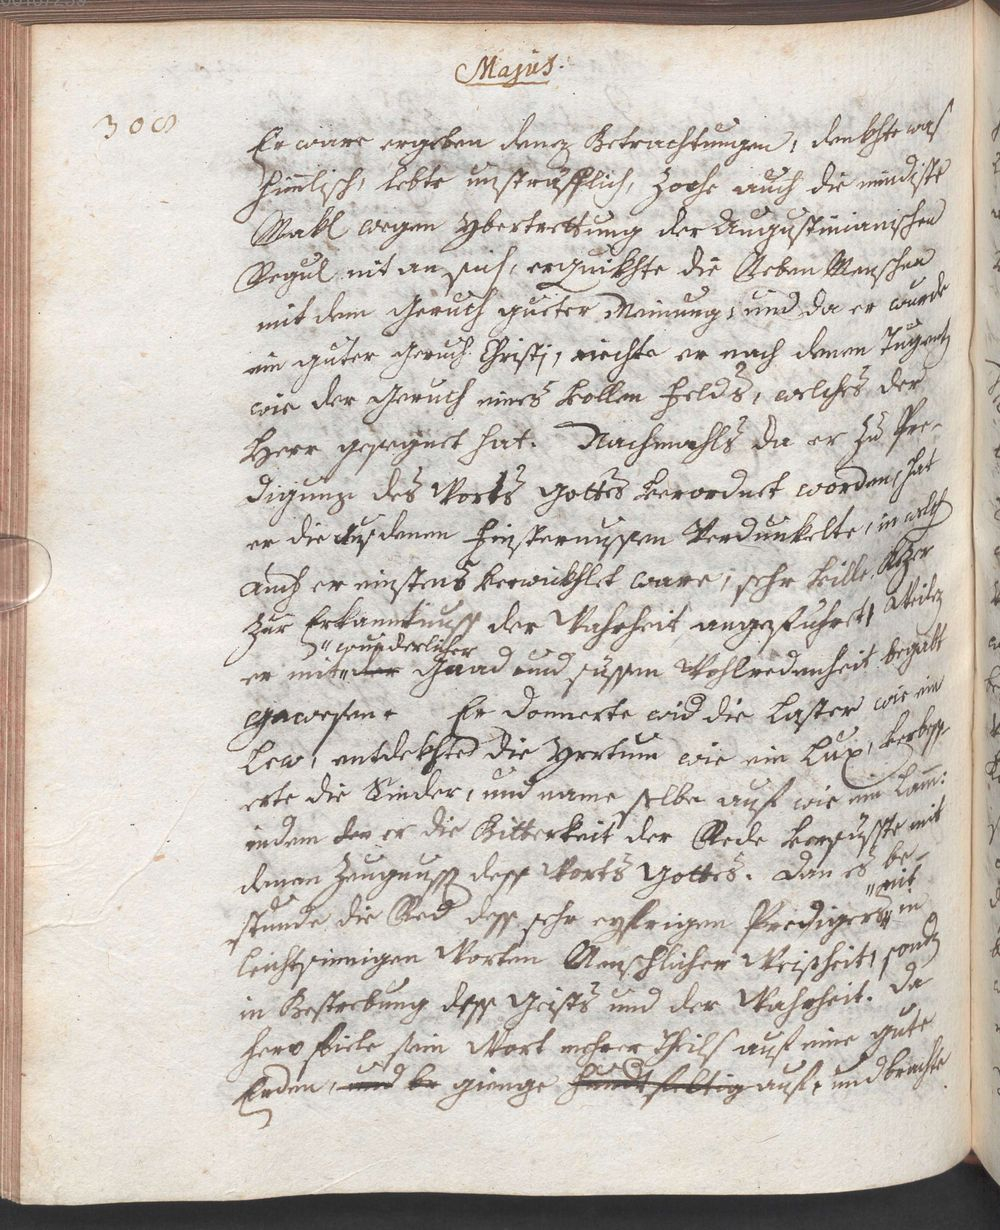 Majus.
308
Er ware ergeben denen Betrachtungen, denckhte was
himlisch, lebte unsträfflich, zoche auch die mindiste
Makl wegen ybertrettung der Augustinianischen
Regul nit an sich, erquikhte die Neben Menschen
mit dem Geruch gueter Meinung, und da er wurde
ein guter Geruch Christi, riechte er nach denen Tugentn
wie der Geruch eines vollen Felds, welches der
Herr gesegnet hat. Nachmahls da er zu Pre-
digung des Worts Gottes verordnet worden, hat
er die aus denen Finsternussen Verdunkelte, in welch
auch er einstens verwickhlet ware, sehr ville Kezer
zur Erkanntnuss der Wahrheit angeführet, Weilen
"wunderlicher
er mit" der Gnad und süssen Wohlredenheit begabt
gewesen. Er donnerte wid die Laster wie ein
Lew, entdekhte die Yrrtum wie ein Lux, verbess-
erte die Sinder, und name selbe auf wie ein Lam:
indem er die Bitterkeit der Rede versüsste mit
denen Zeugnuss dess Worts Gottes. Dan es be-
"nit
stunde die Red dess sehr eyfrigen Predigers" in
leichtsinnigen Worten Menschlicher Weisheit, sondn
in Bestrebung dess Geists und der Wahrheit. Da
hero fiele sein Wort mehrer Theils auf eine gute
Erden, und er gienge hundtfeltig auf, und brachte